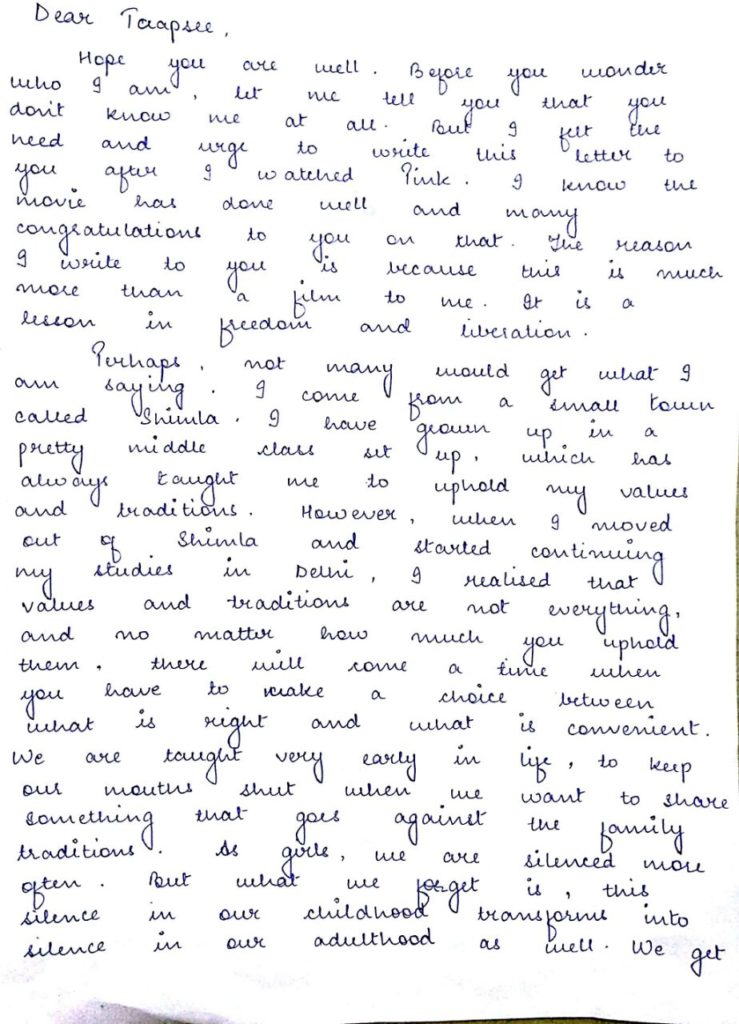 Dear Taapsee,
Hope you are well. Before you wonder
who I am, let me tell you that you
don't know me at all. But I felt the
need and urge to write this letter to
you after I watched Pink. I know the
movie has done well and many
congratulations to you on that. The reason
I write to you is because this is much
more than a film to me. It is a
lesson in freedom and liberation.
Perhaps, not many would get what I
am saying. I come from a small town
called Shimla. I have grown up in a
pretty middle class set up, which has
always taught me to uphold my values
and traditions. However, when I moved
out of Shimla and started continuing
my studies in Delhi, I realised that
values and traditions are not everything,
and no matter how much you uphold
them, there will come a time when
you have to make a choice between
what is right and what is convenient.
We are taught very early in life, to keep
our mouths shut when we want to share
something that goes against the family
traditions. As girls, we are silenced more
often. But what we forget is, this
silence in our childhood transforms into
silence in our adulthood as well. We get